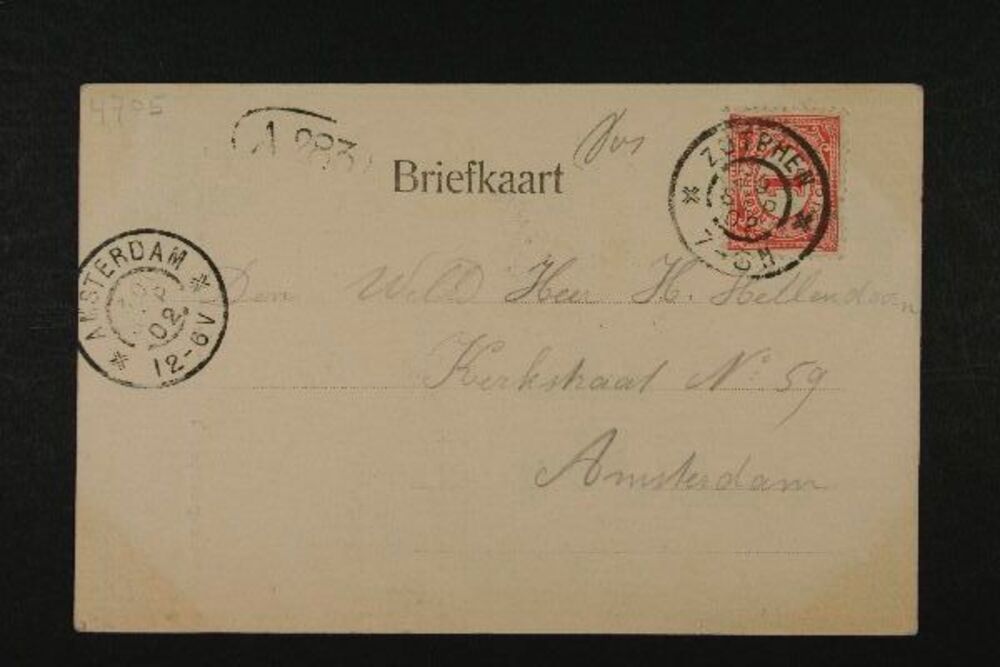 4705
1 983
Briefkaart
ZUTPHEN
SEP
02
7-8N
AMSTERDAM
SEP
02
12-6V
Den Heer H. Hellendoorn
Kerkstraat No 59
Amsterdam